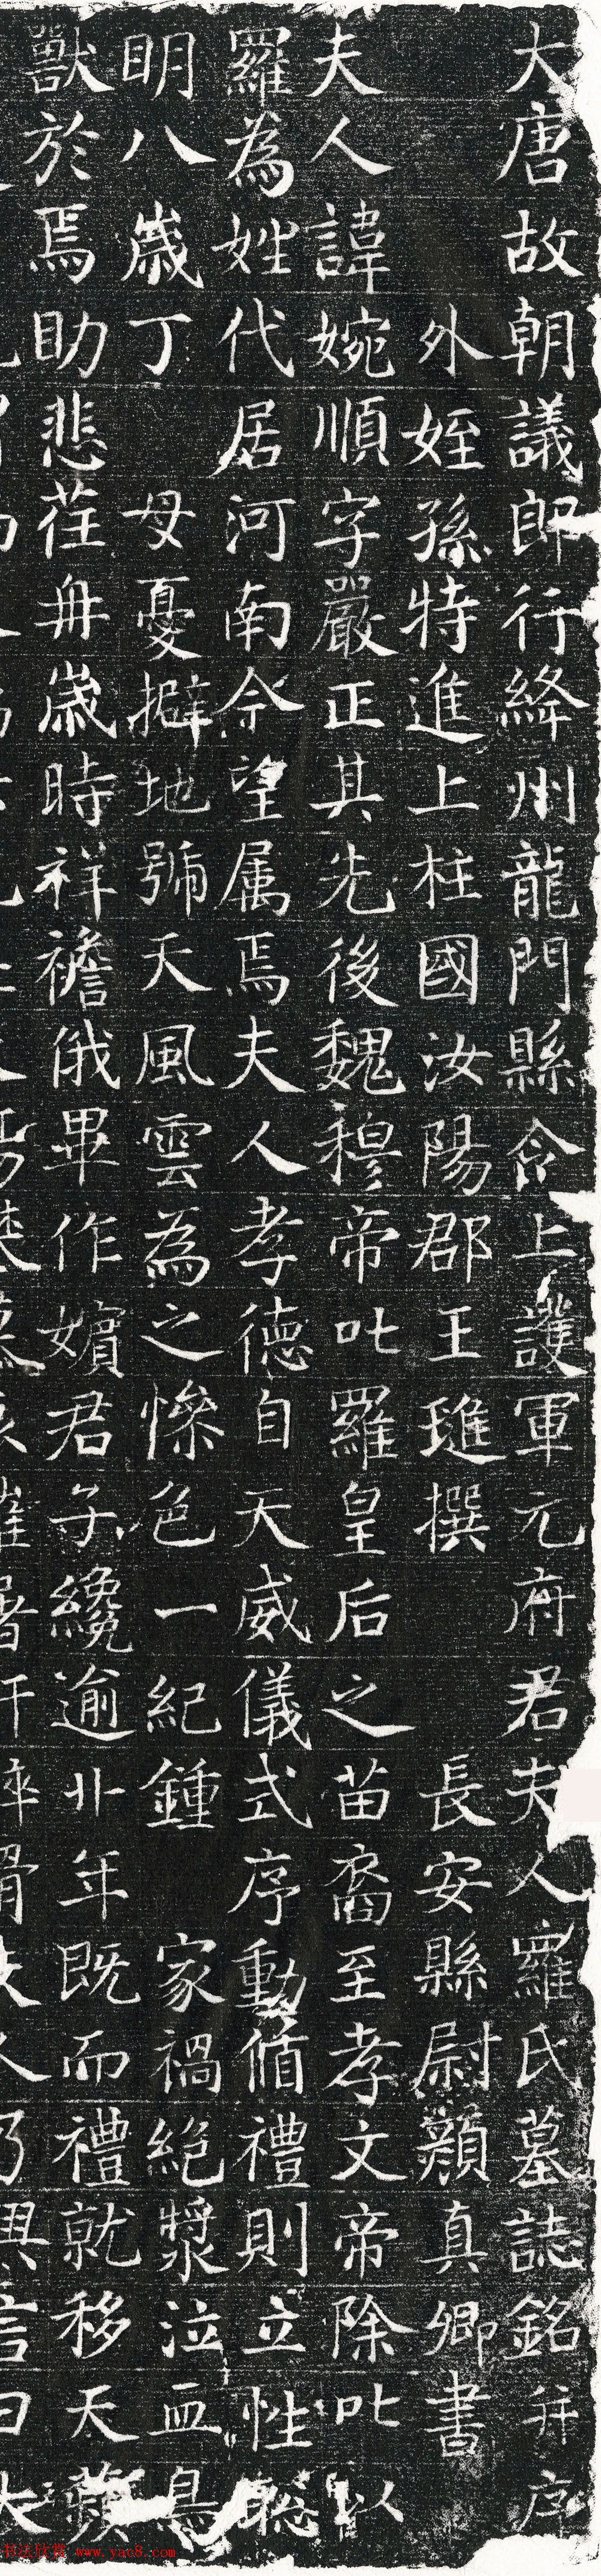 大唐故朝議郎行絳州龍門縣令上護軍元府君夫人羅氏墓誌銘并序
外姪孫特進上柱國汝陽郡王璡撰 長安縣尉顏真卿書
夫人諱婉順字嚴正其先後魏穆帝叱羅皇后之苗裔至孝文帝除叱以
羅為姓代居河南今望属焉夫人孝德自天威儀式序動循禮則立性聰
明八歲丁 母憂擗地號天風雲為之慘色一紀鍾 家禍絕漿泣血鳥
獸於焉助悲荏冉歲時祥襜俄畢作嬪君子纔逾廿年既而禮就移天蘋
书法欣赏 www.yac8.com